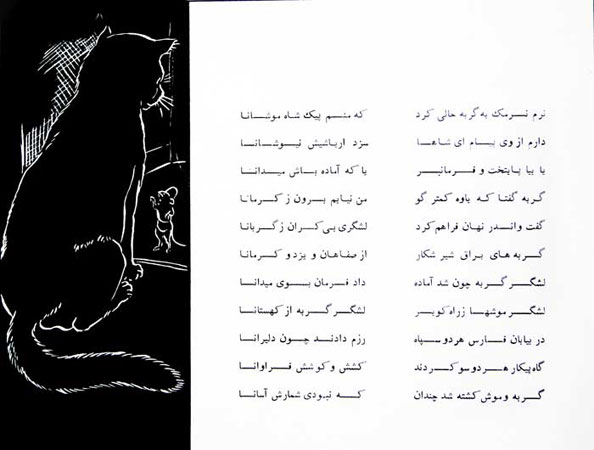 نرم نرمک به گربه حالی کرد که منم پیک شاه موشانا
دارم از وی پیام ای شاها سزد ار باشیش نیوشانا
یا بیا پایتخت و فرمانبر یا که آماده باش میدانا
گربه گفتا که یاوه کمتر گو من نیایم برون ز کرمانا
گفت واندر نهان فراهم کرد لشگری بی کران ز گربانا
گربه های براق شیر شکار از صفاهان و یزد و کرمانا
لشگر گربه چون شد آماده داد فرمان بوی میدانا
لشگر موشها ز راه کویر لشگر گربه از کهستانا
در بیابان فارس هر دو سپاه رزم دادند چون دلیرانا
گاه پیکار هر دو سو کردند کشش و کوشش فراوانا
گربه و موش کشته شد چندان که نبودی شمارش آسانا